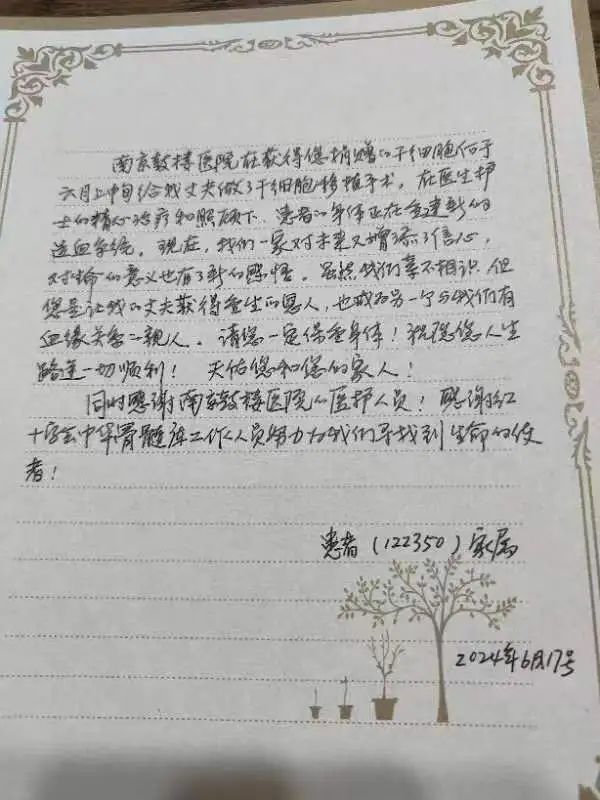 南京鼓楼医院在获得您捐赠的干细胞后于
六月上中旬给我丈夫做了干细胞移植手术。在医生护
士的精心治疗和照顾下，患者的身体正在重建新的
造血系统。现在，我们一家对未来又增添了信心，
对生命的意义也有了新的感悟。虽然我们素不相识，但
您是让我的丈夫获得重生的恩人，也成为另一个与我们有
血缘关系的亲人。请您一定保重身体！祝愿您人生
路途一切顺利！天佑您和您的家人！
同时感谢南京鼓楼医院的医护人员！感谢红
十字会中华骨髓库工作人员努力为我们寻找到生命的使
者！
患者（122350）家属
2024年6月17号